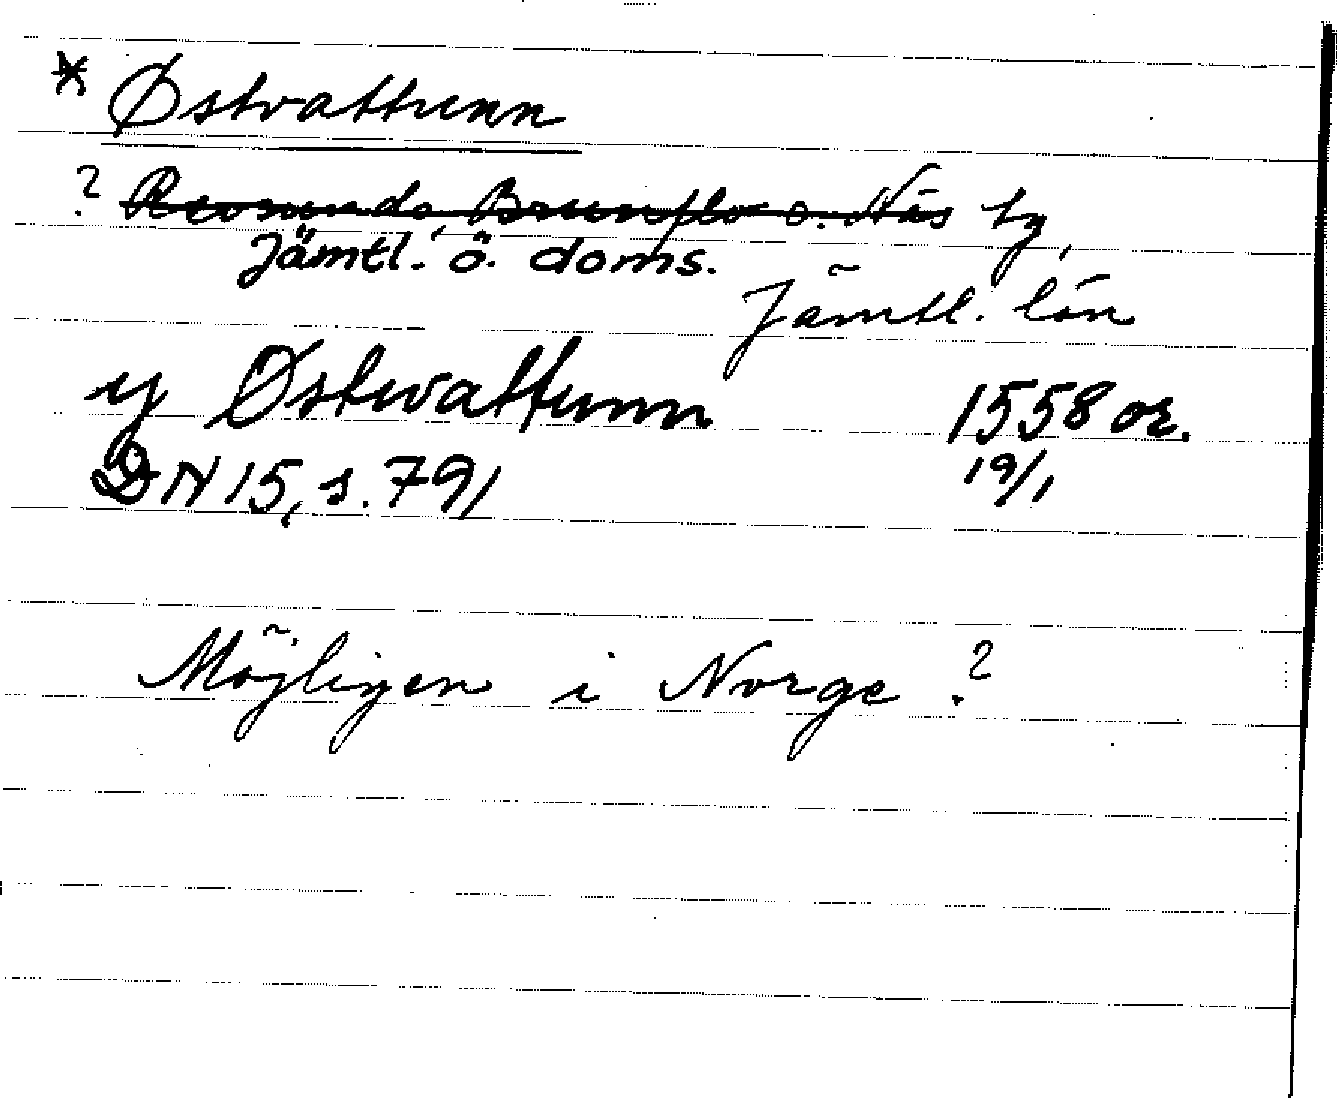 * Østvattunn
? Revsunds, Brunflo o. Näs tg,
Jämtl. ö. doms.
Jämtl. län
y Østwattunn 1558 or.
DN 15, s. 791 19/1
Möjligen i Norge ?